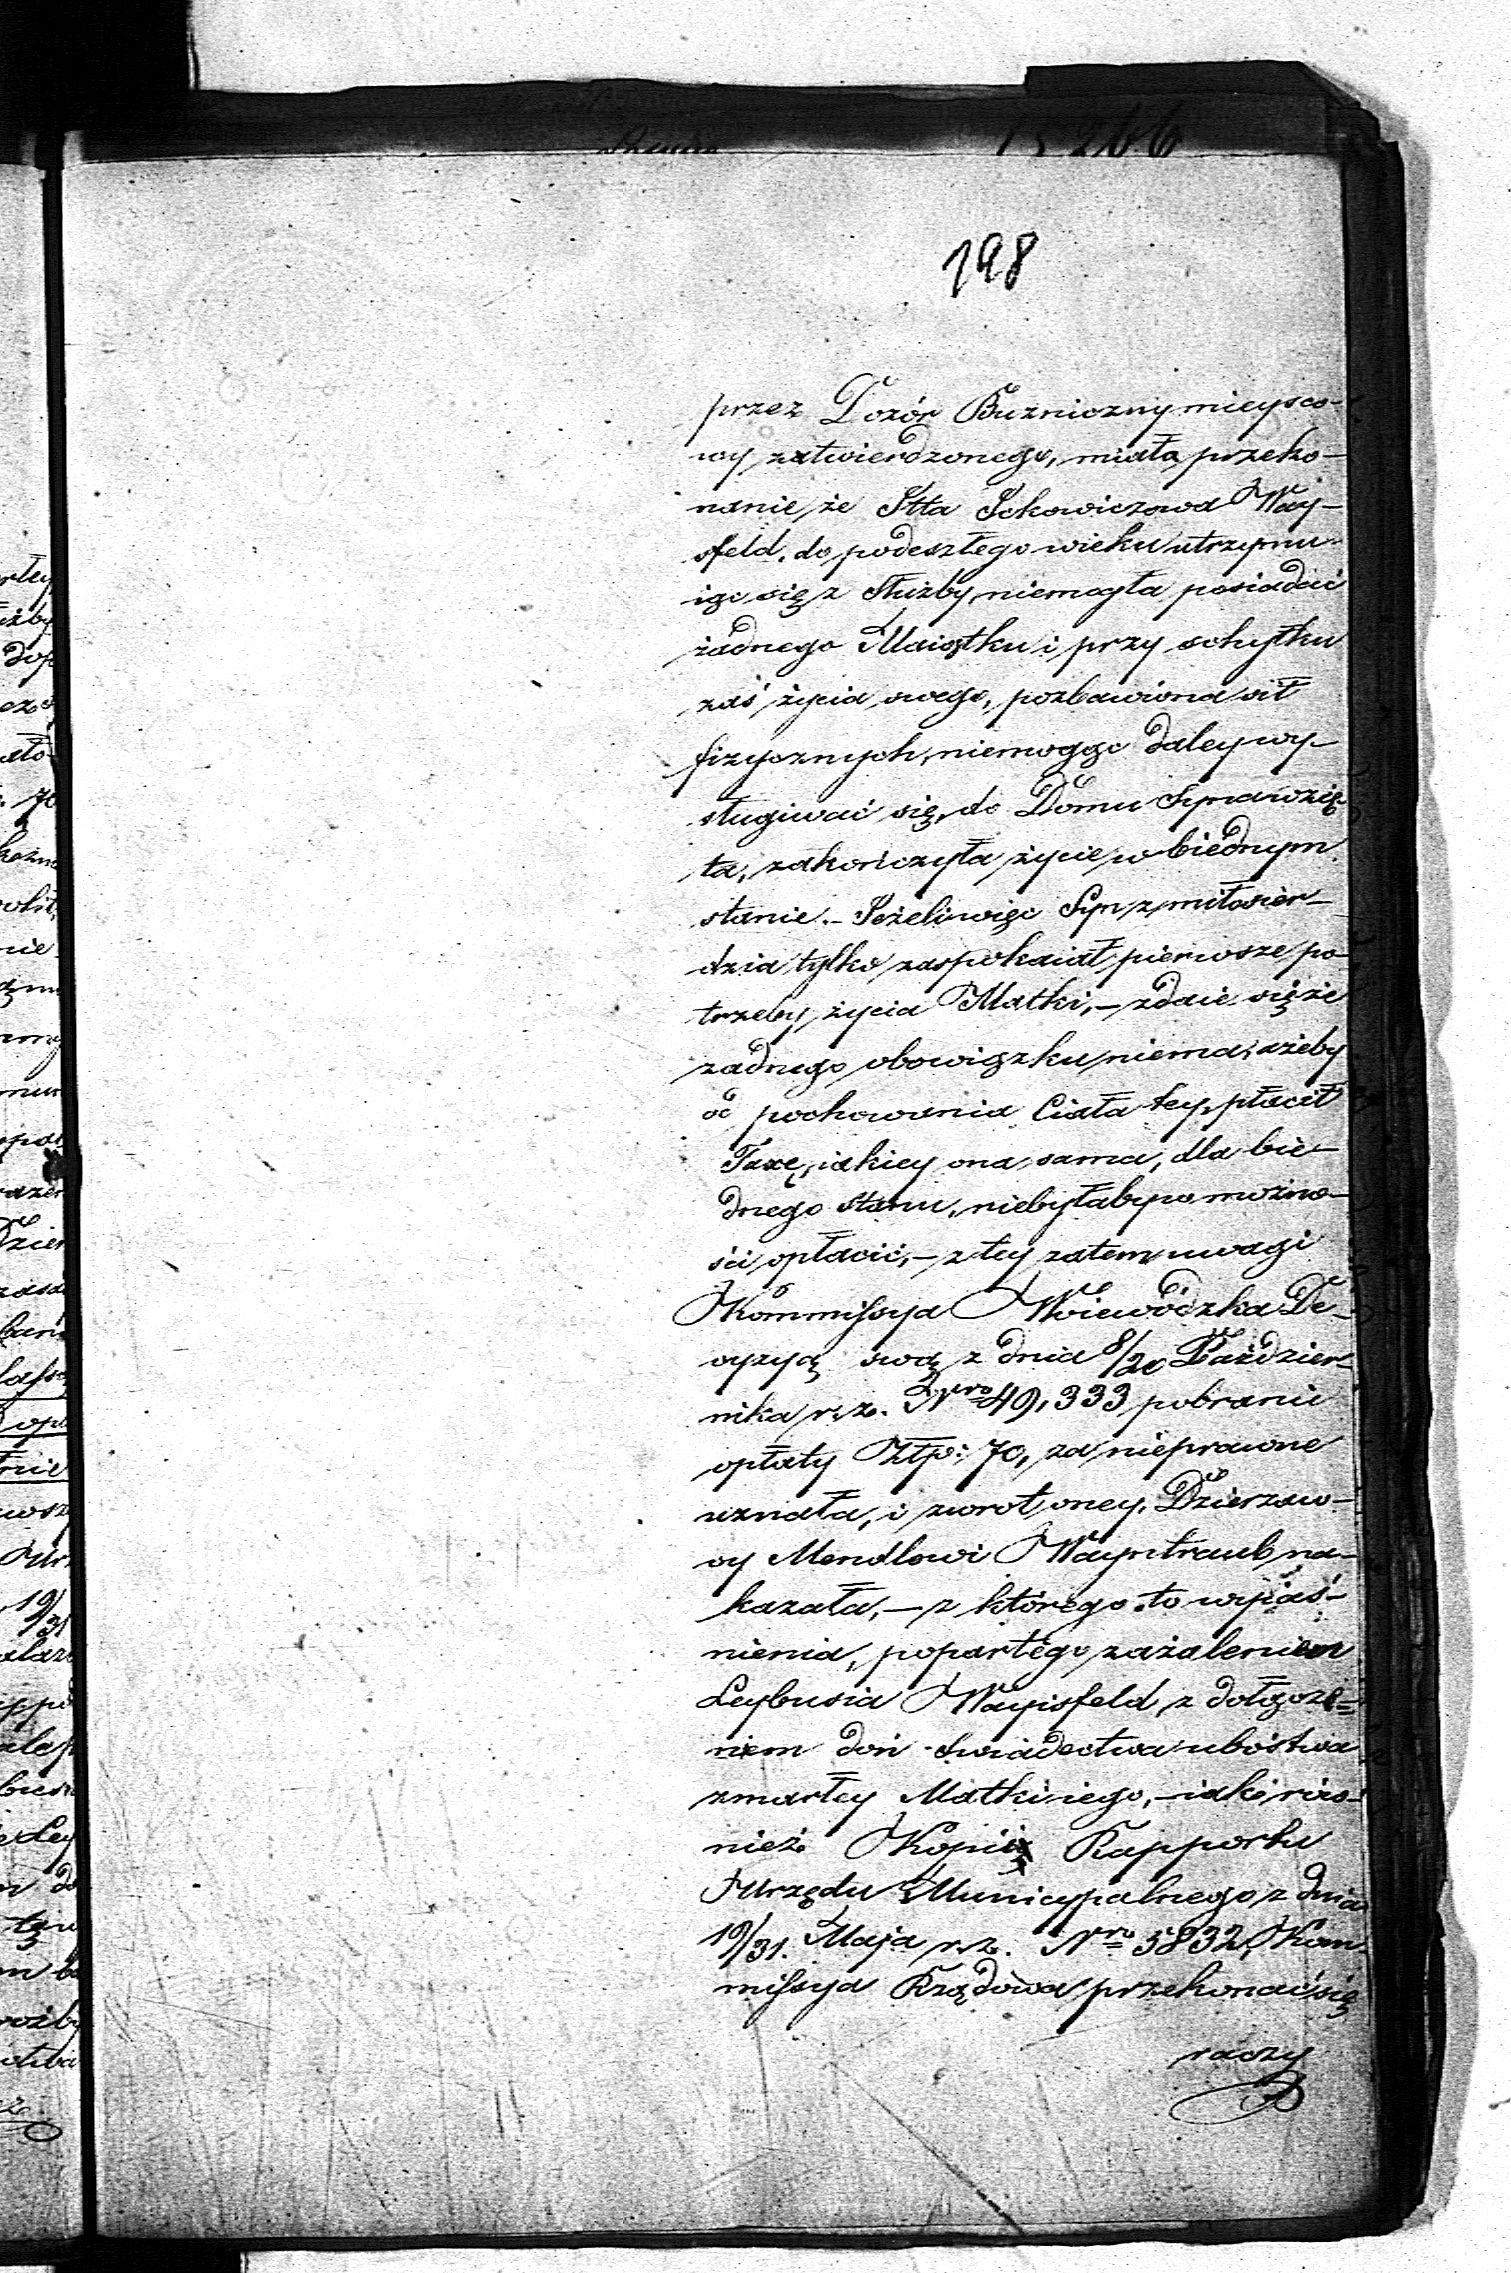 198
przez Dozór Bużniczny mieysco-
wy zatwierdzonego, miała przeko-
nanie że Itta Ickowiczowa Way-
sfeld, do podeszłego wieku utrzymu-
iąc się z Służby, niemogła posiadać
żadnego Maiątku i przy schyłku
zaś życia swego, pozbawiona sił
fizycznych, niemogąc daley wy-
sługiwać się, do Domu Syna wzię-
ta, zakończyła życie w biednym
stanie. - Jeżeli więc Syn z miłosier-
dzia tylko zaspokaiał pierwsze po-
trzeby życia Matki, - zdaie się że
żadnego obowiązku niema, ażeby
od pochowania Ciała tey, płacił
Taxę, iakiey ona sama, dla bie-
dnego stanu, niebyłaby w możno-
ści opłacić, - z tey zatem uwagi
Kommissya Woiewódzka De-
cyzyą swą z dnia 8/20 Paździer-
nika r. z. Nro 49,333 pobranie
opłaty Złp: 70, za nieprawne
uznała, i zwrot oney, Dzierżaw-
cy Mendlowi Wayntraub na-
kazała, - z którego to wyiaś-
nienia, popartego zażaleniem
Leybusia Wayisfeld, z dołącze-
niem doń Świadectwa ubóstwa
zmarłey Matki iego, - iako rów-
nież Kopii Rapportu
Urzędu Municypalnego z dnia
19/31. Maja r. z. Nro 5832, Kom-
missya Rządowa przekonać się
raczy